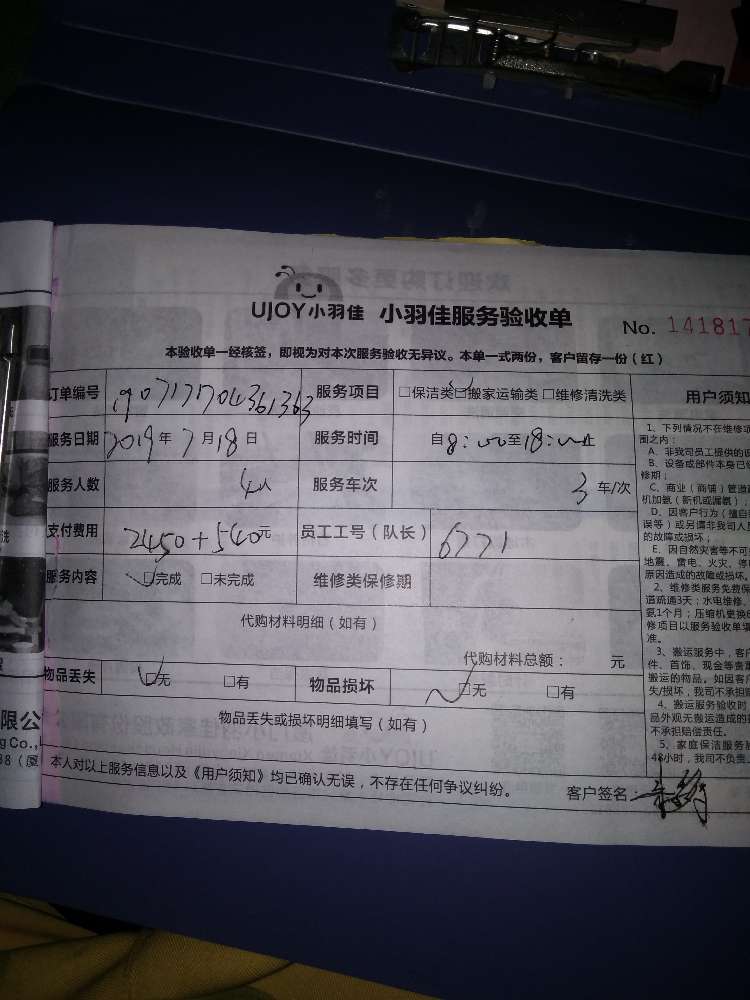 UJOY小羽佳 小羽佳服务验收单 No. 141817
本验收单一经核签，即视为对本次服务验收无异议。本单一式两份，客户留存一份（红）
订单编号 1907171704361363 服务项目 □保洁类 ☑搬家运输类 □维修清洗类 用户须知
服务日期 2019年7月18日 服务时间 自8:00至18:00止
服务人数 4人 服务车次 3车/次
支付费用 2450+540元 员工工号（队长） 6771
服务内容 ☑完成 □未完成 维修类保修期
代购材料明细（如有）
代购材料总额： 元
物品丢失 ☑无 □有 物品损坏 ☑无 □有
物品丢失或损坏明细填写（如有）
本人对以上服务信息以及《用户须知》均已确认无误，不存在任何争议纠纷。 客户签名：
1、下列情况不在维修
围之内：
A、非我司员工提供的
B、设备或部件本身已
修期；
C、商业（商铺）管道
机加氨（新机或漏氨）
D、因客户行为（擅自
误等）或另请非我司人
的故障或损坏；
E、因自然灾害等不可
地震、雷电、火灾、停
原因造成的故障或损坏
2、维修类服务免费保
道疏通3天；水电维修、
氨1个月；压缩机更换
修项目以服务验收单
准。
3、搬运服务中，客户
件、首饰、现金等贵重
搬运的物品。如因客户
失/损坏，我司不承担
4、搬运服务验收时
品外观无搬运造成的
不承担赔偿责任。
5、家庭保洁服务
48小时，我司不负责
限公
g Co.,